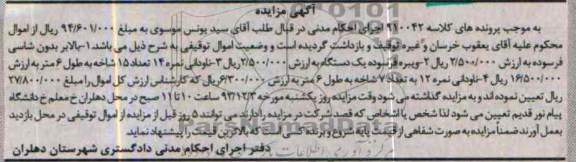 آگهی مزایده
به موجب پرونده های کلاسه ۹۱۰۰۴۲ اجرای احکام مدنی در قبال طلب آقای سید یونس موسوی به مبلغ ۹۴/۶۰۱/۰۰۰ ریال از اموال
محکوم علیه آقای یعقوب خرسان و غیره توقیف و بازداشت گردیده است و وضعیت اموال توقیفی به شرح ذیل می باشد ۱-بالابر بدون شاسی
فرسوده به ارزش ۲/۵۰۰/۰۰۰ ریال ۲-ویبره فرسوده یک دستگاه به ارزش ۲/۵۰۰/۰۰۰ ریال ۳-ناودانی نمره ۱۴ تعداد ۱۵ شاخه به طول ۶ متر به ارزش
۱۶/۵۰۰/۰۰۰ ریال ۴-ناودانی نمره ۱۲ به تعداد ۷ شاخه به طول ۶ متر به ارزش ۶/۳۰۰/۰۰۰ ریال که کارشناس ارزش کل اموال را مبلغ ۲۷/۸۰۰/۰۰۰
ریال تعیین نموده اند و به مزایده گذاشته می شود وقت مزایده روز یکشنبه مورخه ۹۳/۱۲/۳ ساعت ۱۰ تا ۱۱ صبح در محل دهلران خ معلم خ دانشگاه
پیام نور قدیم تعیین می شود لذا شخص یا اشخاص که قصد شرکت در مزایده را دارند می توانند ۵ روز قبل از مزایده از اموال توقیفی در محل بازدید
بعمل آورند ضمناً مزایده به صورت شفاهی از قیمت پایه شروع و برنده کسی است که بالاترین قیمت را پیشنهاد نماید
دفتر اجرای احکام مدنی دادگستری شهرستان دهلران